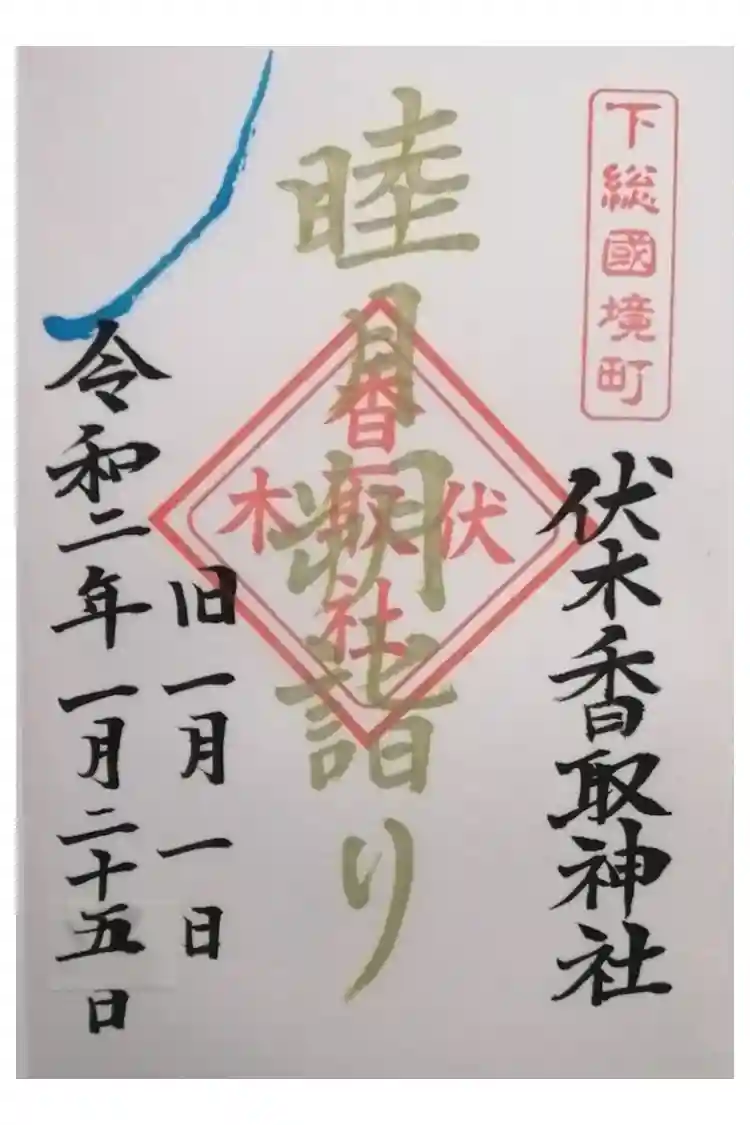 下総國境町
伏木香取神社
睦月朔詣り
伏木
香取社
旧一月一日
令和二年一月二十五日